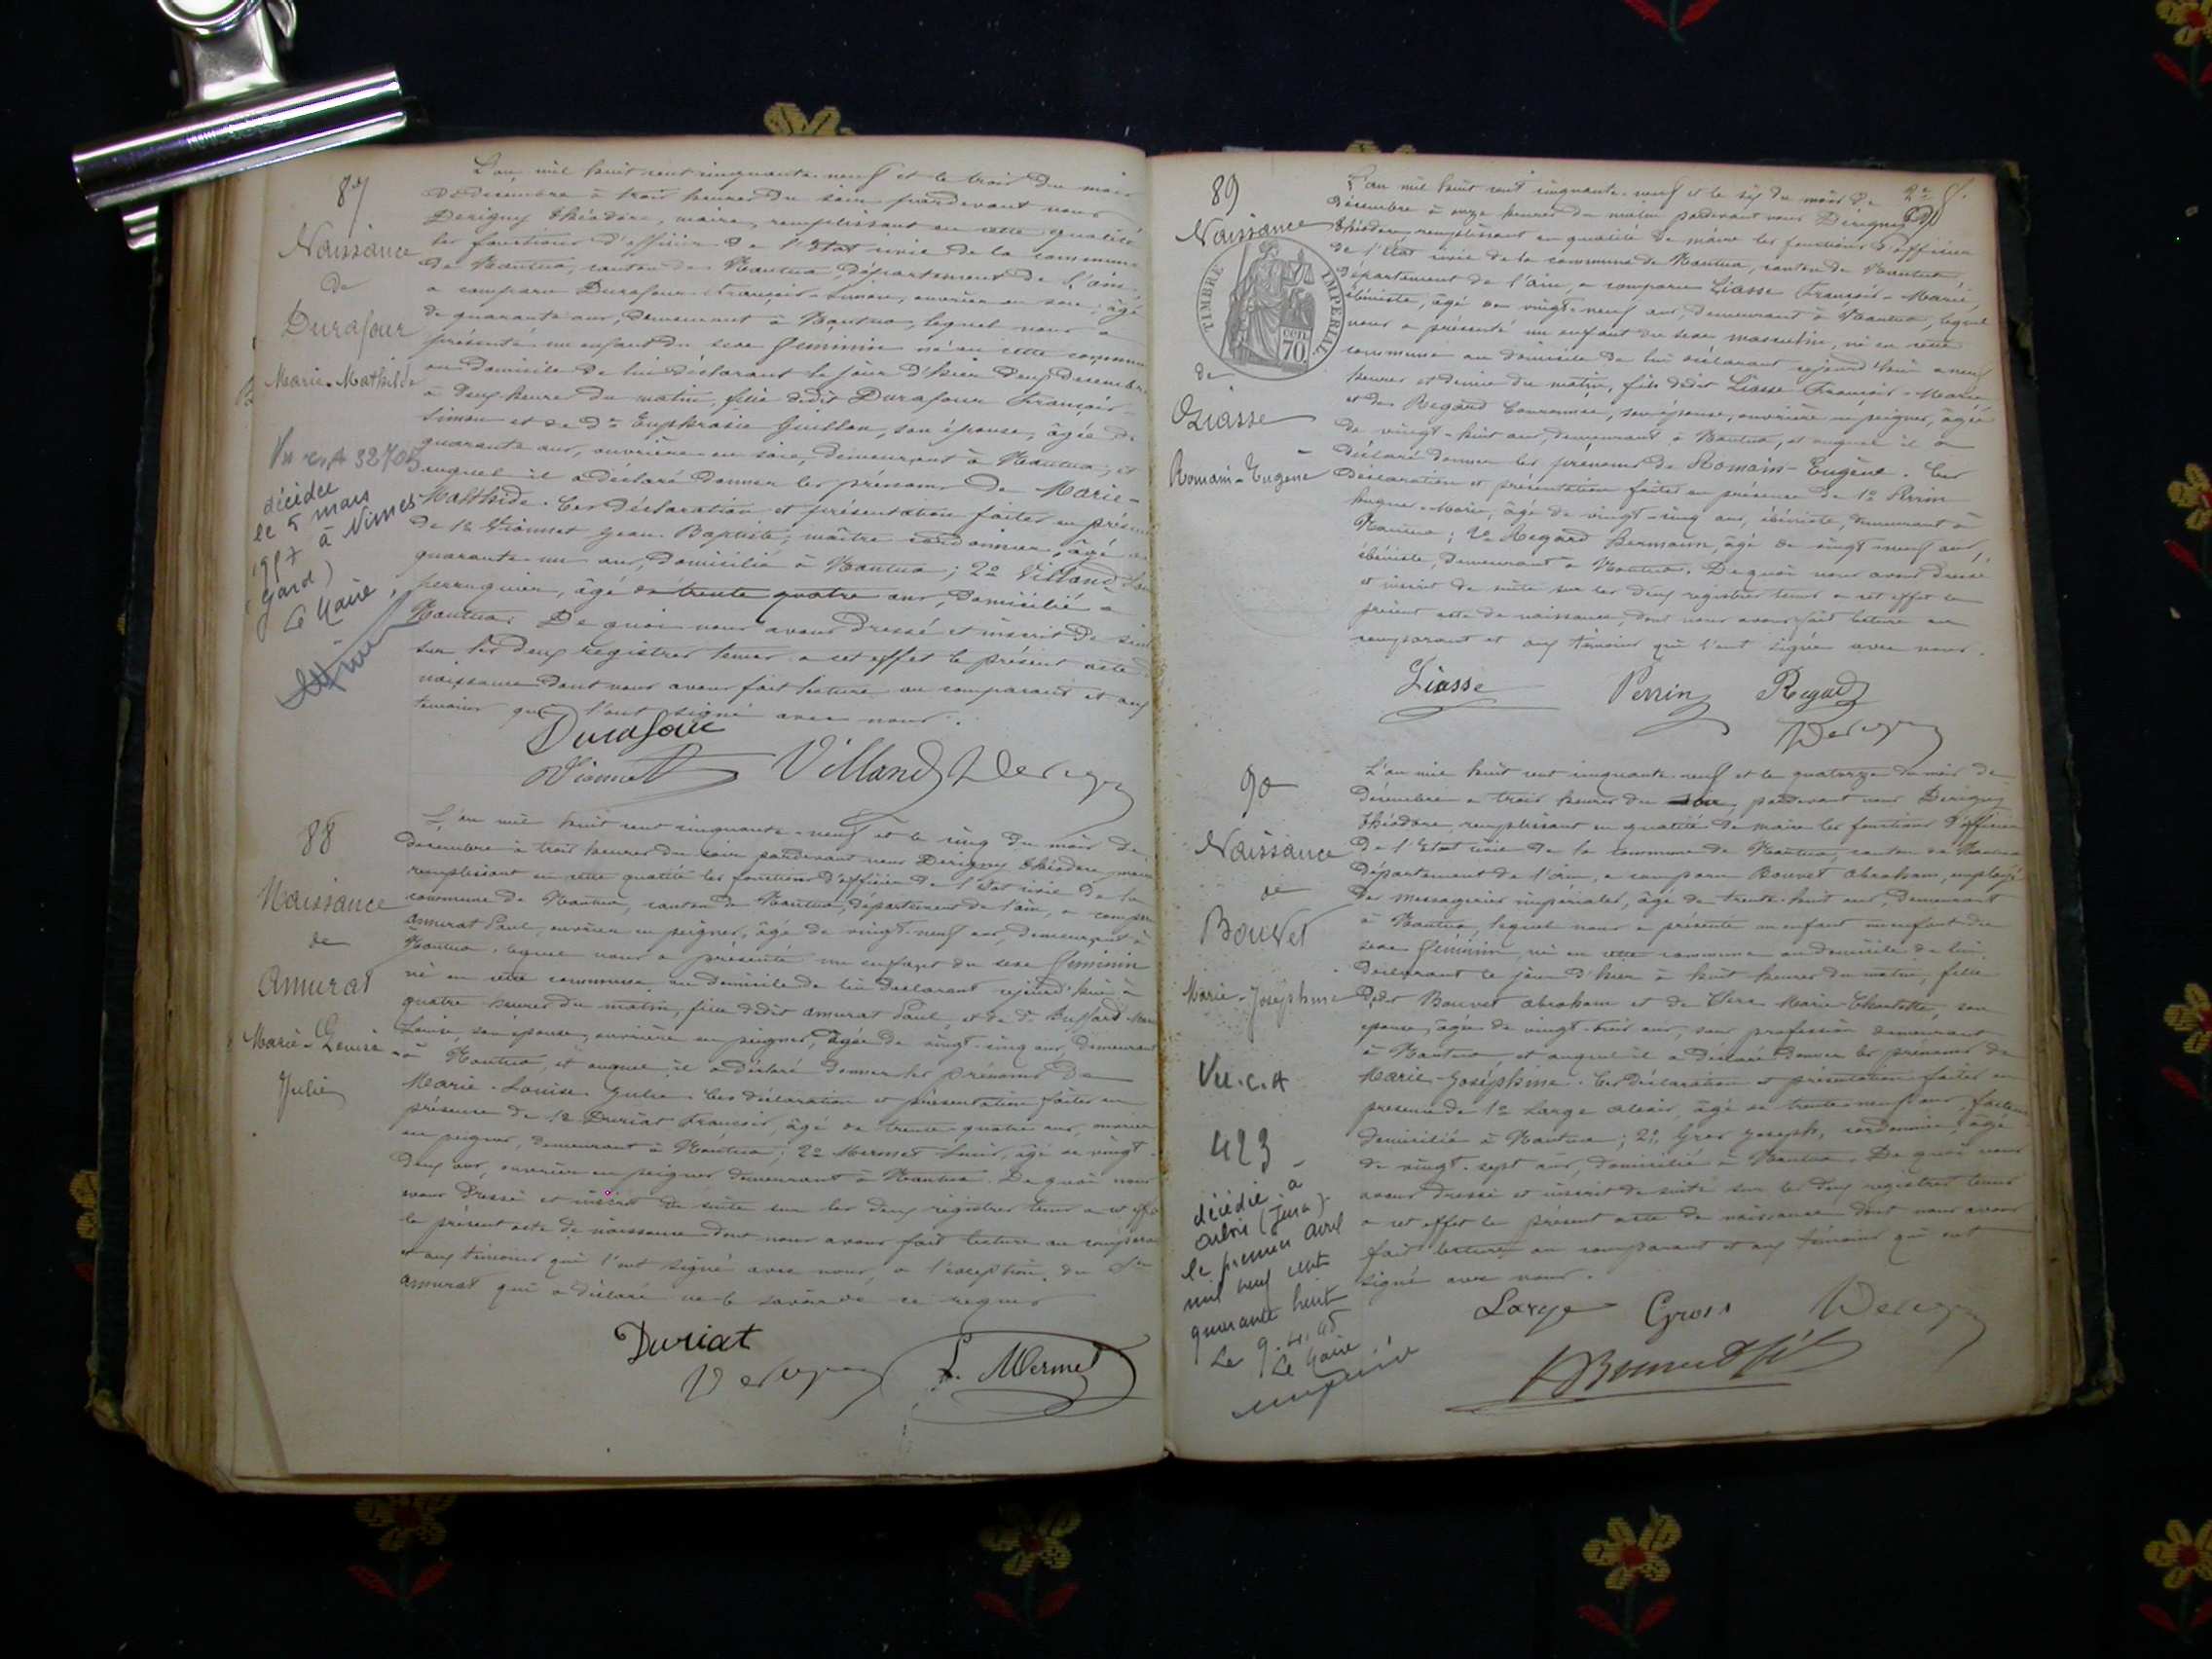 87
Naissance
de
Durafour
Marie-Mathilde
décédée
le 5 mars
à Nîmes
(Gard)
Le Maire
L'an mil huit cent cinquante-neuf et le trois du mois
de décembre à trois heures du soir pardevant nous
Derigny Théodore, maire, remplissant en cette qualité
les fonctions d'officier de l'Etat civil de la commune
de Nantua, canton de Nantua, département de l'ain,
a comparu Durafour François-Simon, ouvrier en soie, âgé
de quarante ans, demeurant à Nantua, lequel nous a
présenté un enfant du sexe féminin né en cette commune
au domicile de lui déclarant le jour d'hier deux décembre
à deux heures du matin, fille dudit Durafour François-
Simon et de De Euphrasie Guillon, son épouse, âgée de
quarante ans, ouvrière en soie, demeurant à Nantua, et
auquel il a déclaré donner les prénoms de Marie-
Mathilde. Ces déclaration et présentation faites en présence
de 1º Vionnet Jean-Baptiste, maître cordonnier, âgé de
quarante-un ans, domicilié à Nantua; 2º Villand
perruquier, âgé de trente quatre ans, domicilié à
Nantua. De quoi nous avons dressé et inscrit de suite
sur les deux registres tenus à cet effet le présent acte de
naissance dont nous avons fait lecture au comparant et aux
témoins qui l'ont signé avec nous.
Durafour
Vionnet Villand Derigny
88
Naissance
de
Amurat
Marie-Louise
Julie
L'an mil huit cent cinquante-neuf et le cinq du mois de
décembre à trois heures du soir pardevant nous Derigny Théodore, maire
remplissant en cette qualité les fonctions d'officier de l'Etat civil de la
commune de Nantua, canton de Nantua, département de l'ain, a comparu
Amurat Paul, ouvrier en peignes, âgé de vingt-neuf ans, demeurant à
Nantua, lequel nous a présenté un enfant du sexe féminin
né en cette commune au domicile de lui déclarant cejourd'hui à
quatre heures du matin, fille dudit Amurat Paul et de De Buffard Marie
Louise, son épouse, ouvrière en peignes, âgée de vingt-cinq ans, demeurant
à Nantua, et auquel il a déclaré donner les prénoms de
Marie-Louise Julie. Ces déclaration et présentation faites en
présence de 1º Duriat François, âgé de trente-quatre ans, ouvrier
en peignes, demeurant à Nantua; 2º Mermet Louis, âgé de vingt-
deux ans, ouvrier en peignes demeurant à Nantua. De quoi nous
avons dressé et inscrit de suite sur les deux registres tenus à cet effet
le présent acte de naissance dont nous avons fait lecture au comparant
et aux témoins qui l'ont signé avec nous, à l'exception du Sr
Amurat qui a déclaré ne le savoir de ce requis
Duriat
Derigny L. Mermet
89
Naissance
TIMBRE IMPERIAL
70
de
Liasse
Romain-Eugène
L'an mil huit cent cinquante-neuf et le six du mois de
décembre à onze heures du matin pardevant nous Derigny
Théodore remplissant en qualité de maire les fonctions d'officier
de l'Etat civil de la commune de Nantua, canton de Nantua,
département de l'ain, a comparu Liasse François-Marie,
ébéniste, âgé de vingt-neuf ans, demeurant à Nantua, lequel
nous a présenté un enfant du sexe masculin, né en cette
commune au domicile de lui déclarant cejourd'hui à neuf
heures et demie du matin, fils dudit Liasse François-Marie
et de Regard son épouse, ouvrière en peignes, âgée
de vingt-huit ans, demeurant à Nantua, et auquel il a
déclaré donner les prénoms de Romain-Eugène. Ces
déclaration et présentation faites en présence de 1º Perrin
-Marie, âgé de vingt-cinq ans, ébéniste, demeurant à
Nantua; 2º Regard Hermann, âgé de vingt neuf ans,
ébéniste, demeurant à Nantua. De quoi nous avons dressé
et inscrit de suite sur les deux registres tenus à cet effet le
présent acte de naissance, dont nous avons fait lecture au
comparant et aux témoins qui l'ont signé avec nous.
Liasse Perrin Regard
Derigny
90
Naissance
de
Bouvet
Marie-Joséphine
Vu.c.A
423
décédée à
Arbois (Jura)
le premier avril
mil neuf cent
quarante huit
Le 9.4.48
Le Maire
L'an mil huit cent cinquante-neuf et le quatorze du mois de
décembre à trois heures du soir, pardevant nous Derigny
Théodore, remplissant en qualité de maire les fonctions d'officier
de l'Etat civil de la commune de Nantua, canton de Nantua
département de l'ain, a comparu Bouvet Abraham, employé
des messageries impériales, âgé de trente-huit ans, demeurant
à Nantua, lequel nous a présenté un enfant un enfant du
sexe féminin, né en cette commune au domicile de lui
déclarant le jour d'hier à huit heures du matin, fille
dudit Bouvet Abraham et de Marie-Charlotte, son
épouse, âgée de vingt-trois ans, sans profession demeurant
à Nantua et auquel il a déclaré donner les prénoms de
Marie-Joséphine. Ces déclaration et présentation faites en
présence de 1º Large Alexis, âgé de trente-neuf ans, facteur
domicilié à Nantua; 2º Gros Joseph, cordonnier, âgé
de vingt-sept ans, domicilié à Nantua. De quoi nous
avons dressé et inscrit de suite sur les deux registres tenus
à cet effet le présent acte de naissance dont nous avons
fait lecture au comparant et aux témoins qui ont
signé avec nous.
Large Gros Derigny